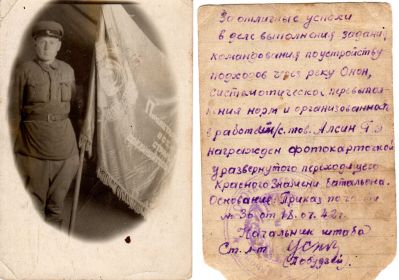 За отличные успехи
в деле выполнения задан.
командования по устройству
подходов через реку Онон,
систематическое перевыпол
нения норм и организованност
в работе с. тов. Алсин Г.
награжден фотокарточкой
у развернутого переходящего
Красного Знамени батальона.
Основание: Приказ по части
№ 36 от 18.07.42 г.
Начальник штаба
Ст. л-т